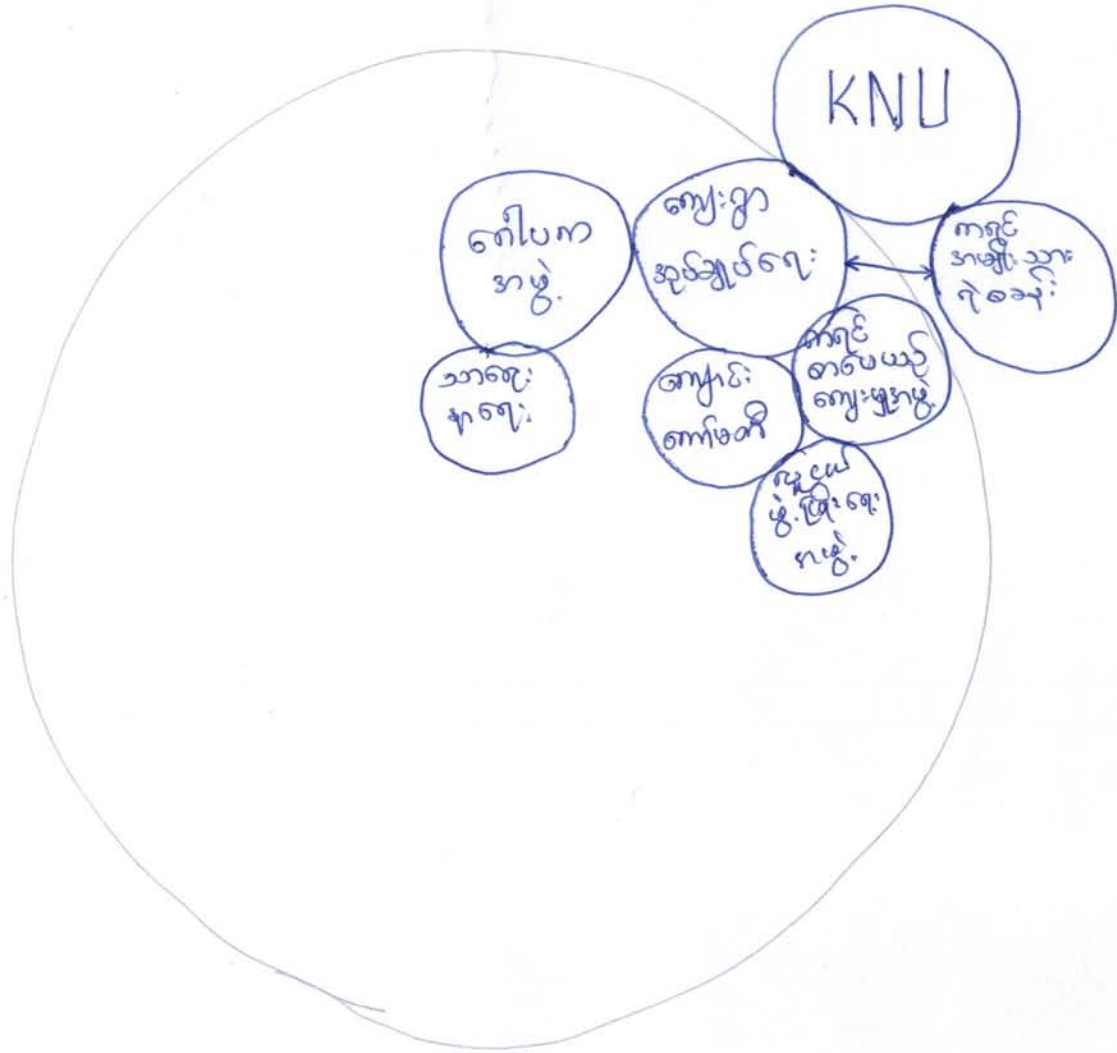 KNU
ဂေါပက
အဖွဲ့
ကျေးရွာ
အုပ်ချုပ်ရေး
ကရင်
အမျိုးသား
ရဲစခန်း
သာရေး
နာရေး
ကျောင်း
ကော်မတီ
ကရင်
စာပေယဉ်
ကျေးမှုအဖွဲ့
လူငယ်
ဖွံ့ဖြိုးရေး
အဖွဲ့